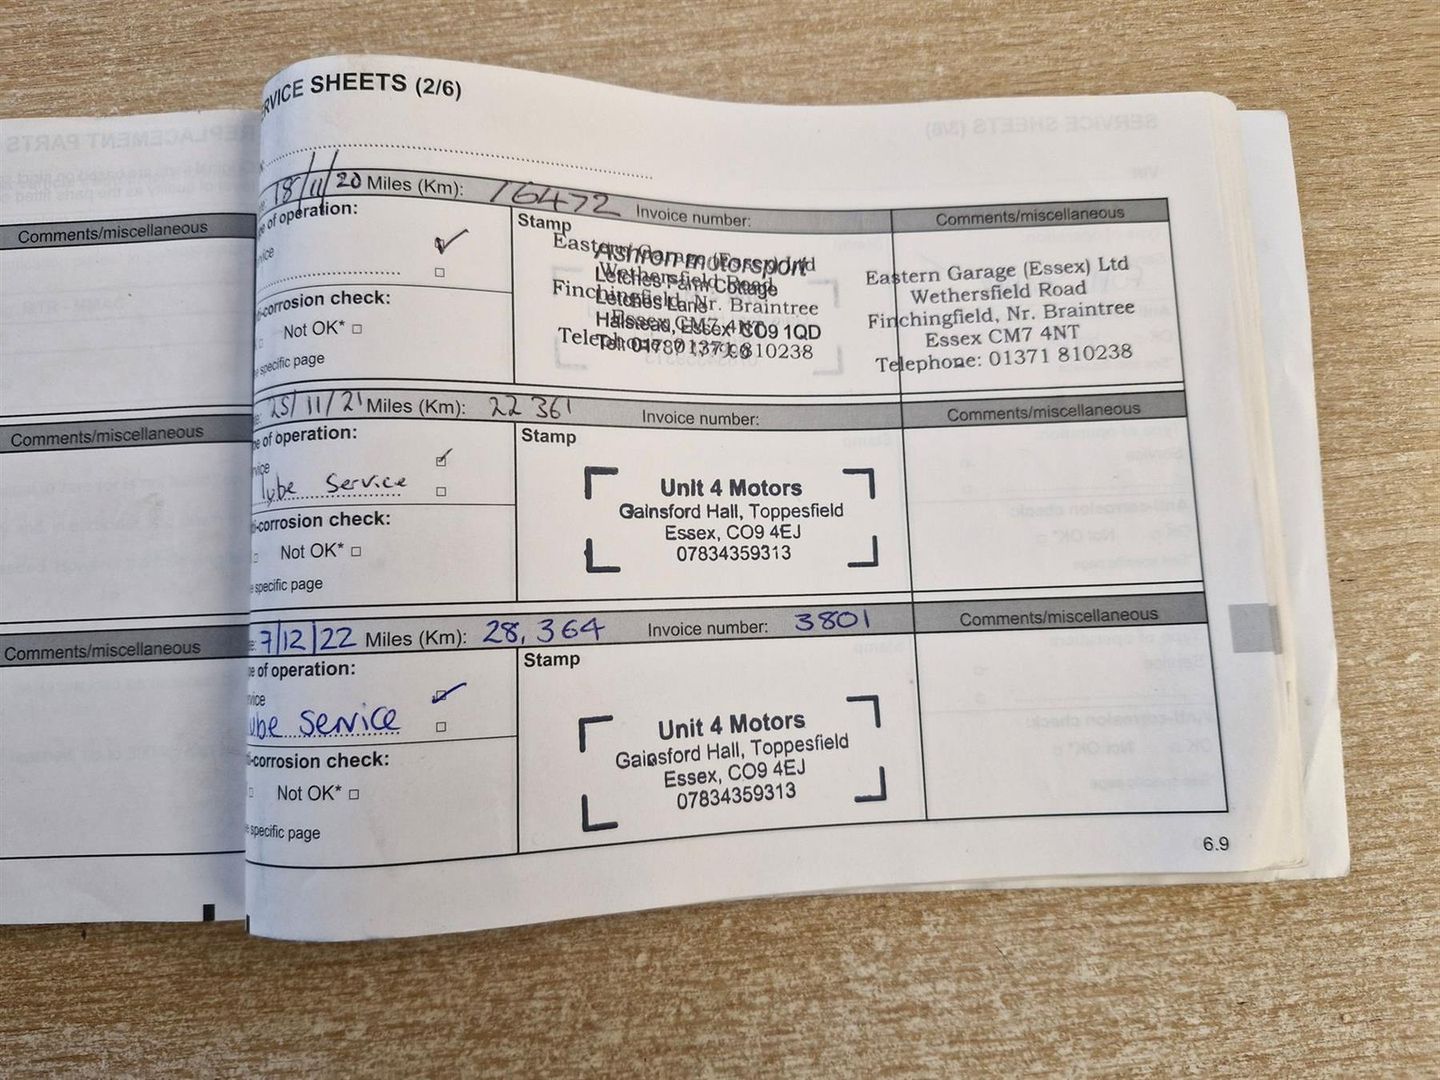 Comments/miscellaneous
Comments/miscellaneous
Comments/miscellaneous
SHEETS (2/6)
18/11/20 Miles (Km): 16472 Invoice number: Comments/miscellaneous
of operation:
Stamp
Eastern Garage (Essex) Ltd
Wethersfield Road
Finchingfield, Nr. Braintree
Essex CM7 4NT
Telephone: 01371 810238
Ashron motorsport
Letches Farm Cottage
Letches Lane
Halstead, Essex CO9 1QD
Eastern Garage (Essex) Ltd
Wethersfield Road
Finchingfield, Nr. Braintree
Essex CM7 4NT
Telephone: 01371 810238
-corrosion check:
Not OK*
specific page
25/11/21 Miles (Km): 22 361 Invoice number: Comments/miscellaneous
of operation:
Lube Service
Stamp
Unit 4 Motors
Gainsford Hall, Toppesfield
Essex, CO9 4EJ
07834359313
-corrosion check:
Not OK*
specific page
7/12/22 Miles (Km): 28,364 Invoice number: 3801 Comments/miscellaneous
of operation:
ube Service
Stamp
Unit 4 Motors
Gainsford Hall, Toppesfield
Essex, CO9 4EJ
07834359313
-corrosion check:
Not OK*
specific page
6.9